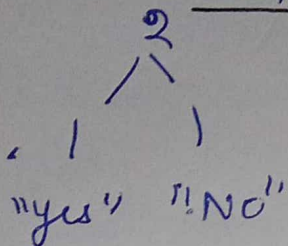 2
"yes" "!No"